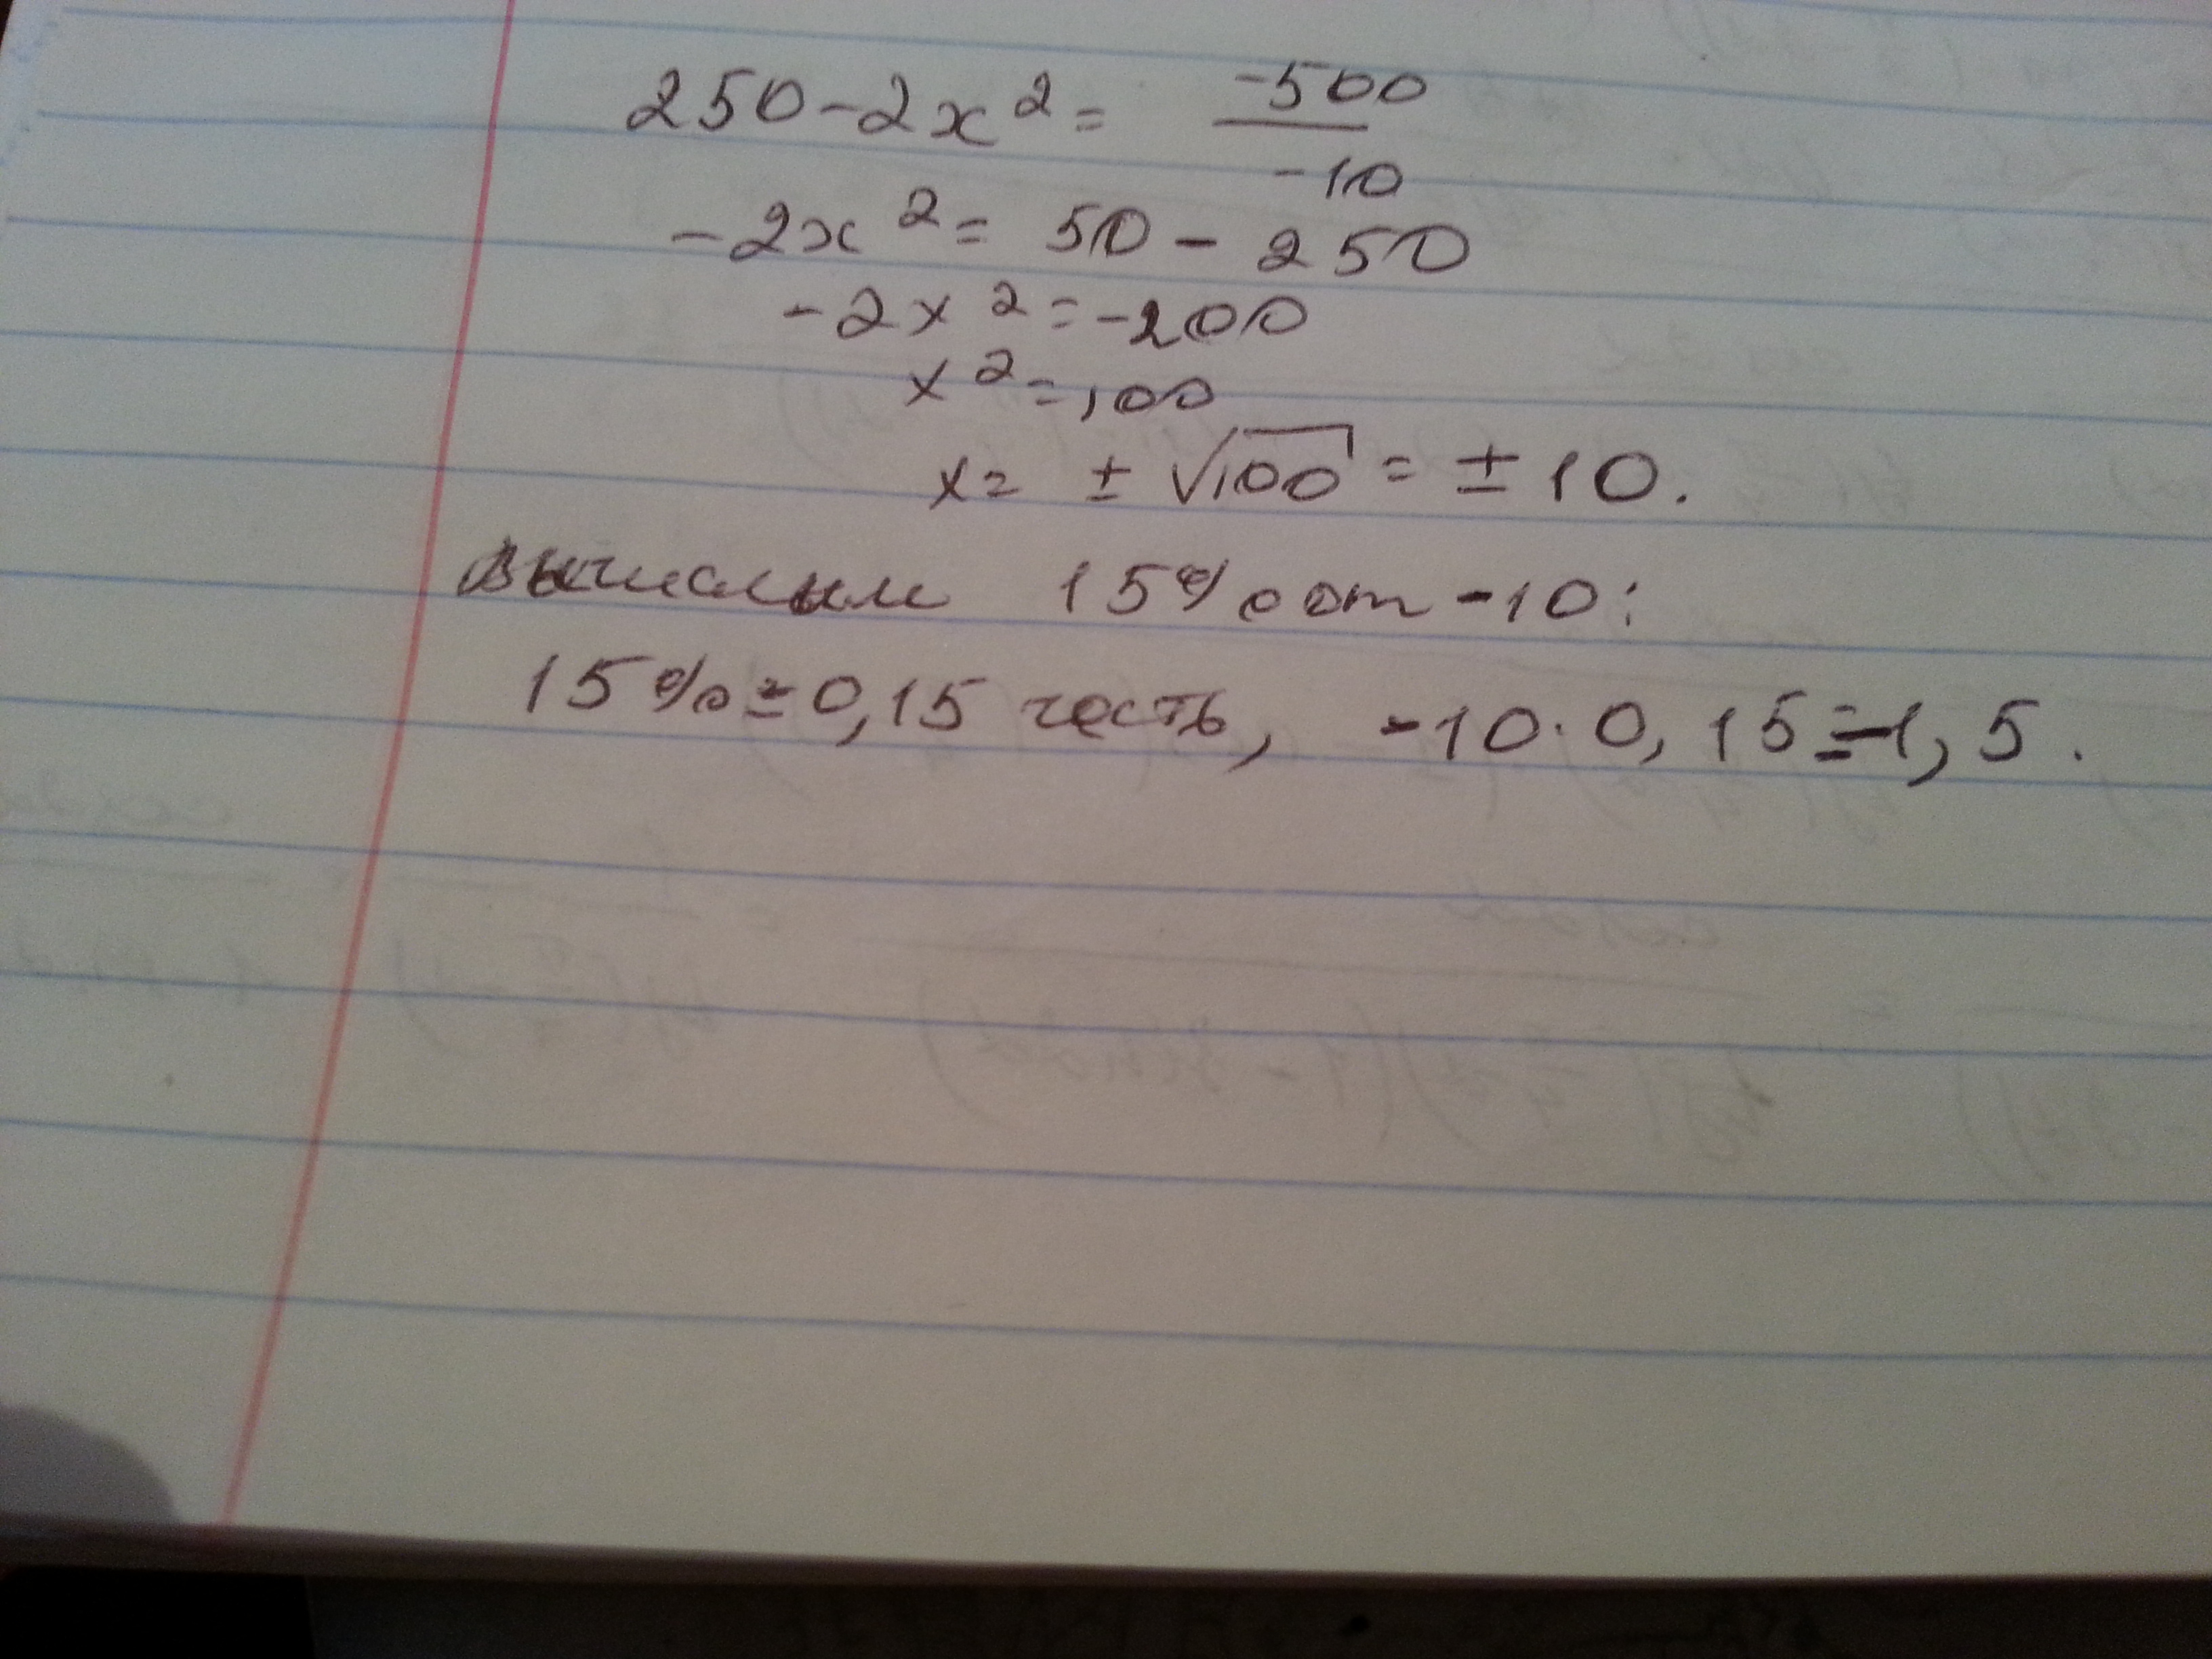 250 - 2x² = -500/-10
-2x² = 50 - 250
-2x² = -200
x² = 100
x = ± √100 = ± 10.
Вычислим 15% от -10:
15% = 0,15 часть, -10 · 0,15 = -1,5.